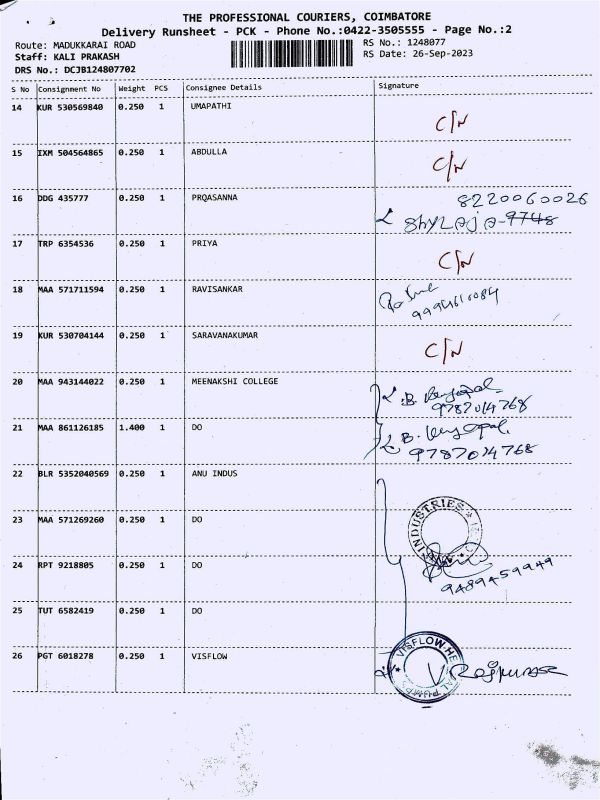 THE PROFESSIONAL COURIERS, COIMBATORE
Delivery Runsheet - PCK - Phone No.:0422-3505555 - Page No.:2
Route: MADUKKARAI ROAD RS No.: 1248077
Staff: KALI PRAKASH RS Date: 26-Sep-2023
DRS No.: DCJB124807702
S No Consignment No Weight PCS Consignee Details Signature
14 KUR 530569840 0.250 1 UMAPATHI
C/N
15 IXM 504564865 0.250 1 ABDULLA
C/N
16 DDG 435777 0.250 1 PRQASANNA 8220060026
ShYLAjA-9748
17 TRP 6354536 0.250 1 PRIYA
C/N
18 MAA 571711594 0.250 1 RAVISANKAR
19 KUR 530704144 0.250 1 SARAVANAKUMAR
C/N
20 MAA 943144022 0.250 1 MEENAKSHI COLLEGE
9787014768
21 MAA 861126185 1.400 1 DO
9787014768
22 BLR 5352040569 0.250 1 ANU INDUS
INDUSTRIES
23 MAA 571269260 0.250 1 DO
24 RPT 9218805 0.250 1 DO
9489459949
25 TUT 6582419 0.250 1 DO
26 PGT 6018278 0.250 1 VISFLOW
VISFLOW